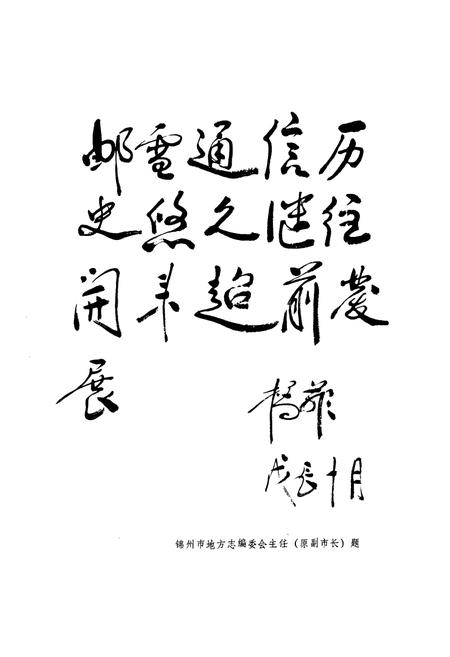 邮電通信历
史悠久继往
开来超前发
展
戊辰十月
锦州市地方志编委会主任（原副市长）题